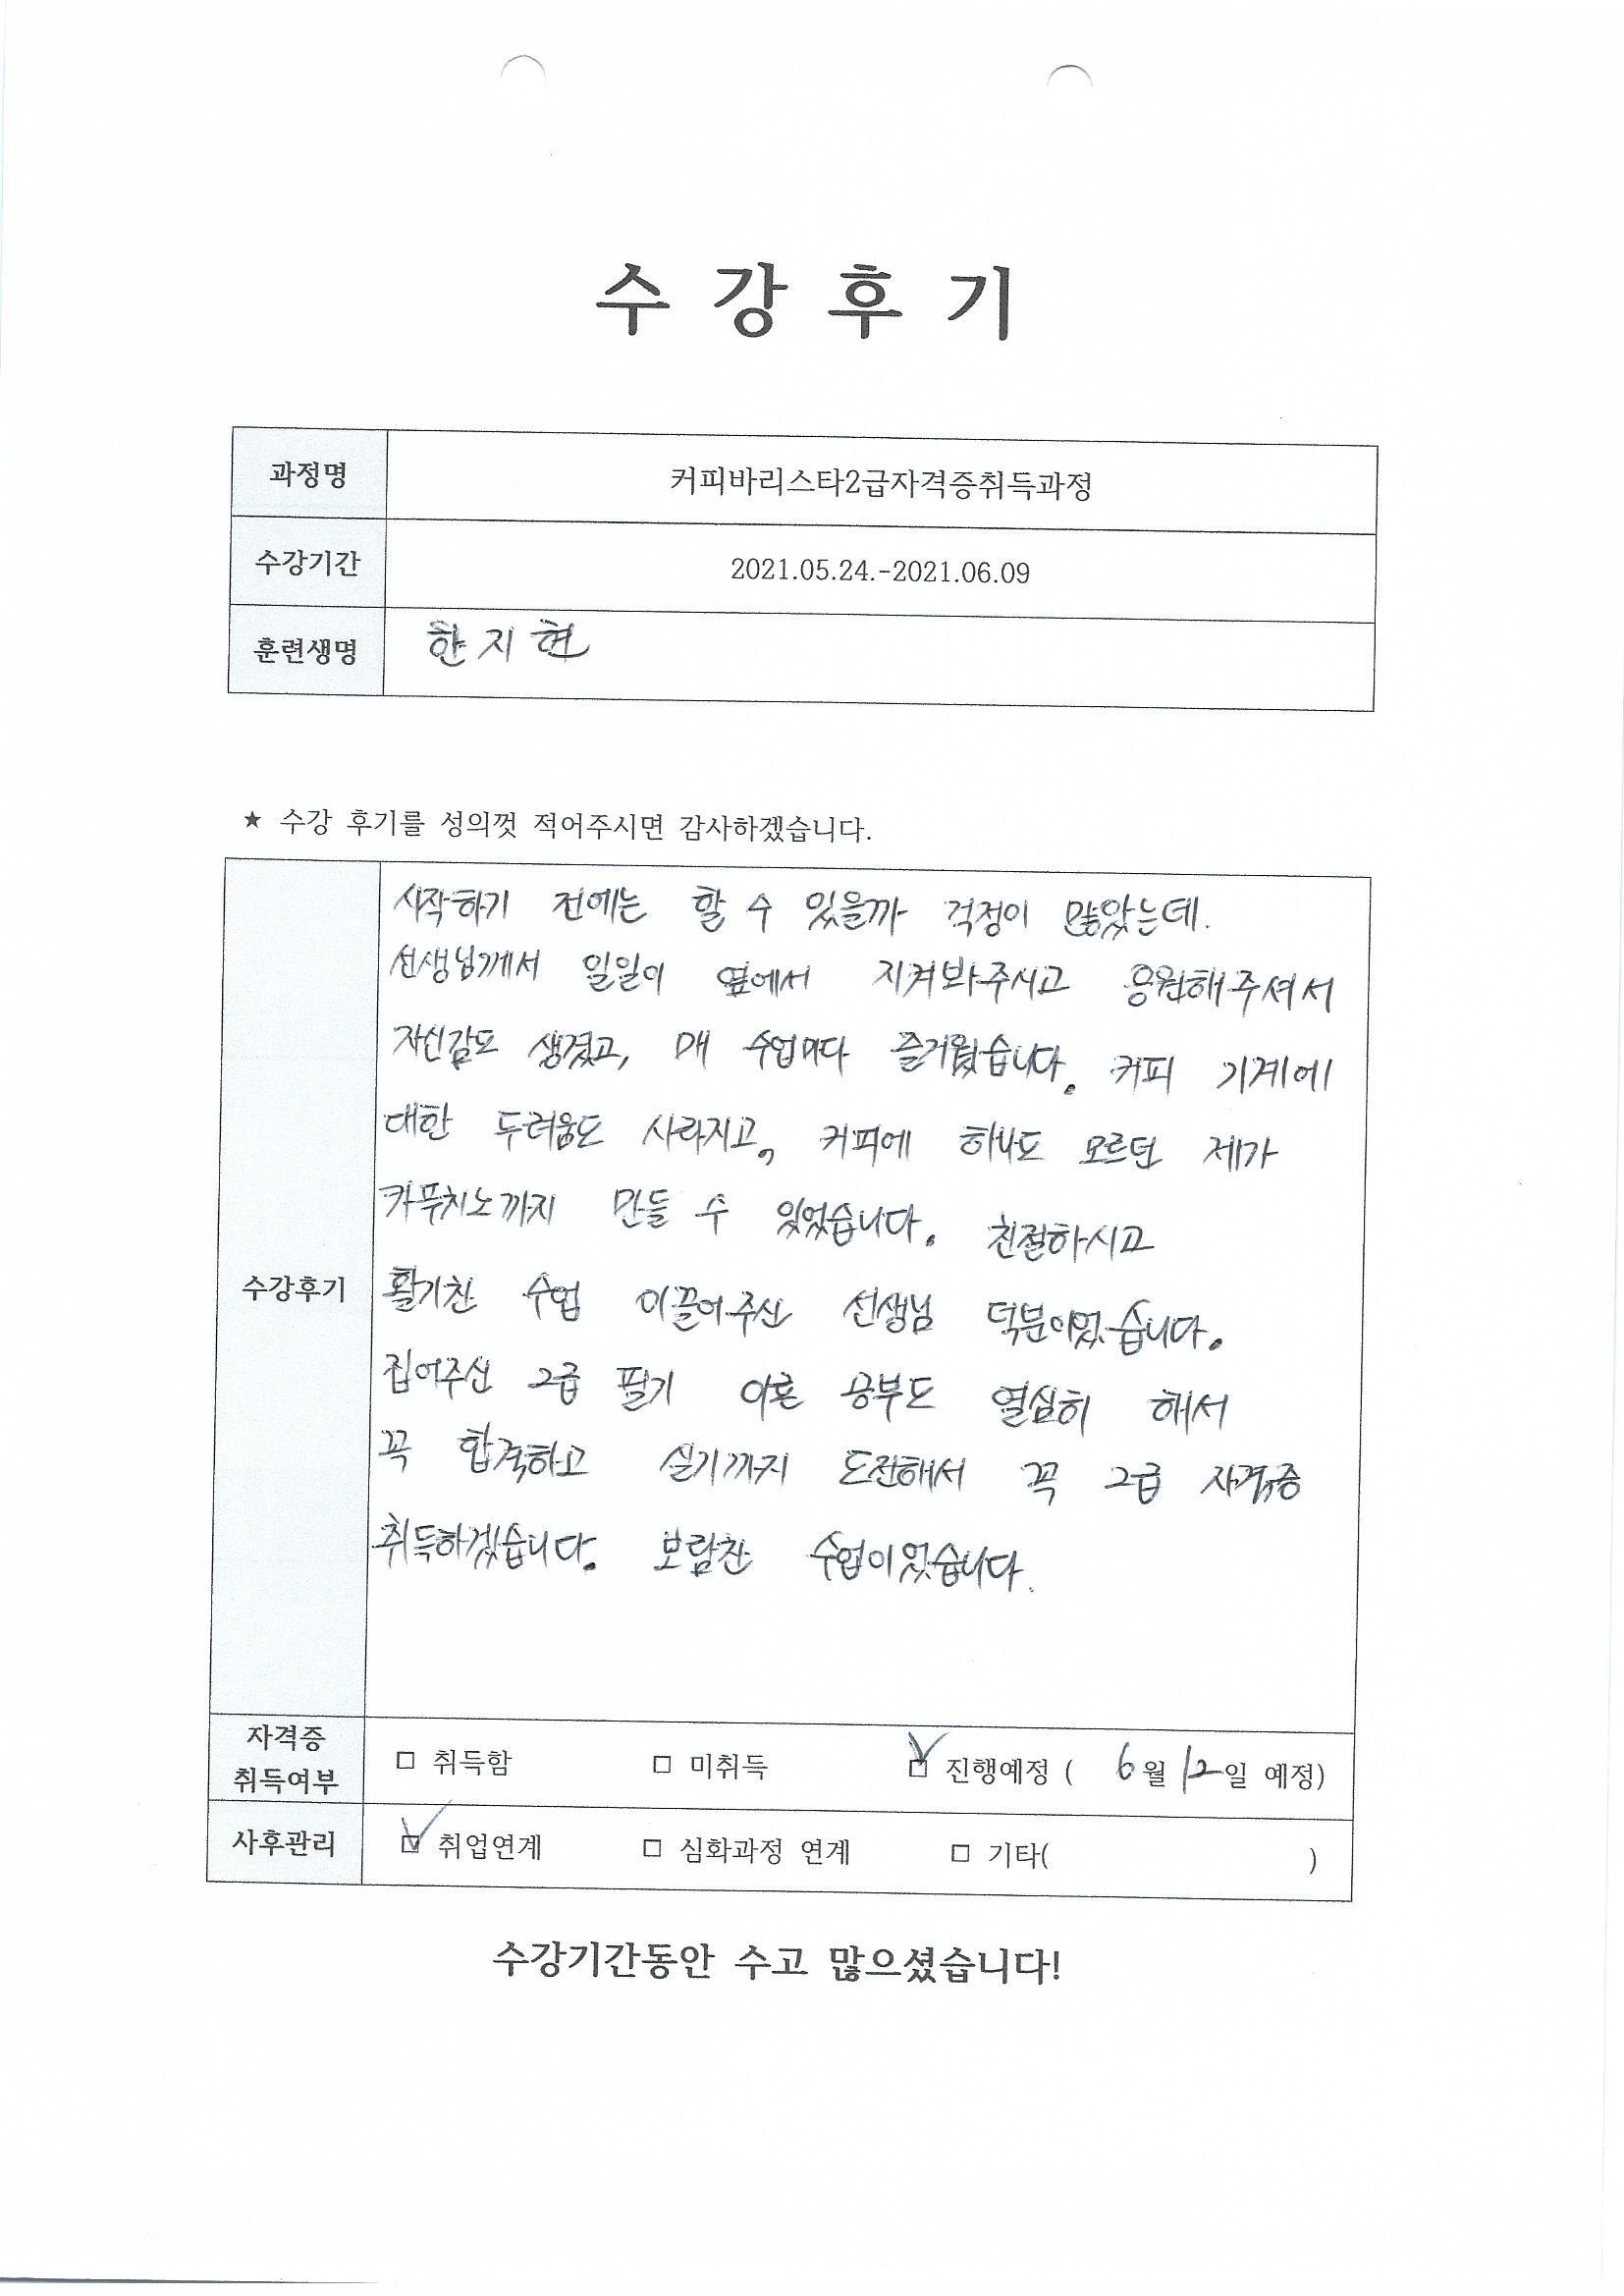 수 강 후 기
과정명 커피바리스타2급자격증취득과정
수강기간 2021.05.24.-2021.06.09
훈련생명 한지현
★ 수강 후기를 성의껏 적어주시면 감사하겠습니다.
시작하기 전에는 할 수 있을까 걱정이 많았는데.
선생님께서 일일이 옆에서 지켜봐주시고 응원해주셔서
자신감도 생겼고, 매 수업마다 즐거웠습니다. 커피 기계에
대한 두려움도 사라지고, 커피에 하나도 모르던 제가
카푸치노까지 만들 수 있었습니다. 친절하시고
수강후기 활기찬 수업 이끌어주신 선생님 덕분이었습니다.
집어주신 2급 필기 이론 공부도 열심히 해서
꼭 합격하고 실기까지 도전해서 꼭 2급 자격증
취득하겠습니다. 보람찬 수업이었습니다.
자격증
취득여부 □ 취득함 □ 미취득 ☑ 진행예정 ( 6월 12일 예정)
사후관리 ☑ 취업연계 □ 심화과정 연계 □ 기타( )
수강기간동안 수고 많으셨습니다!